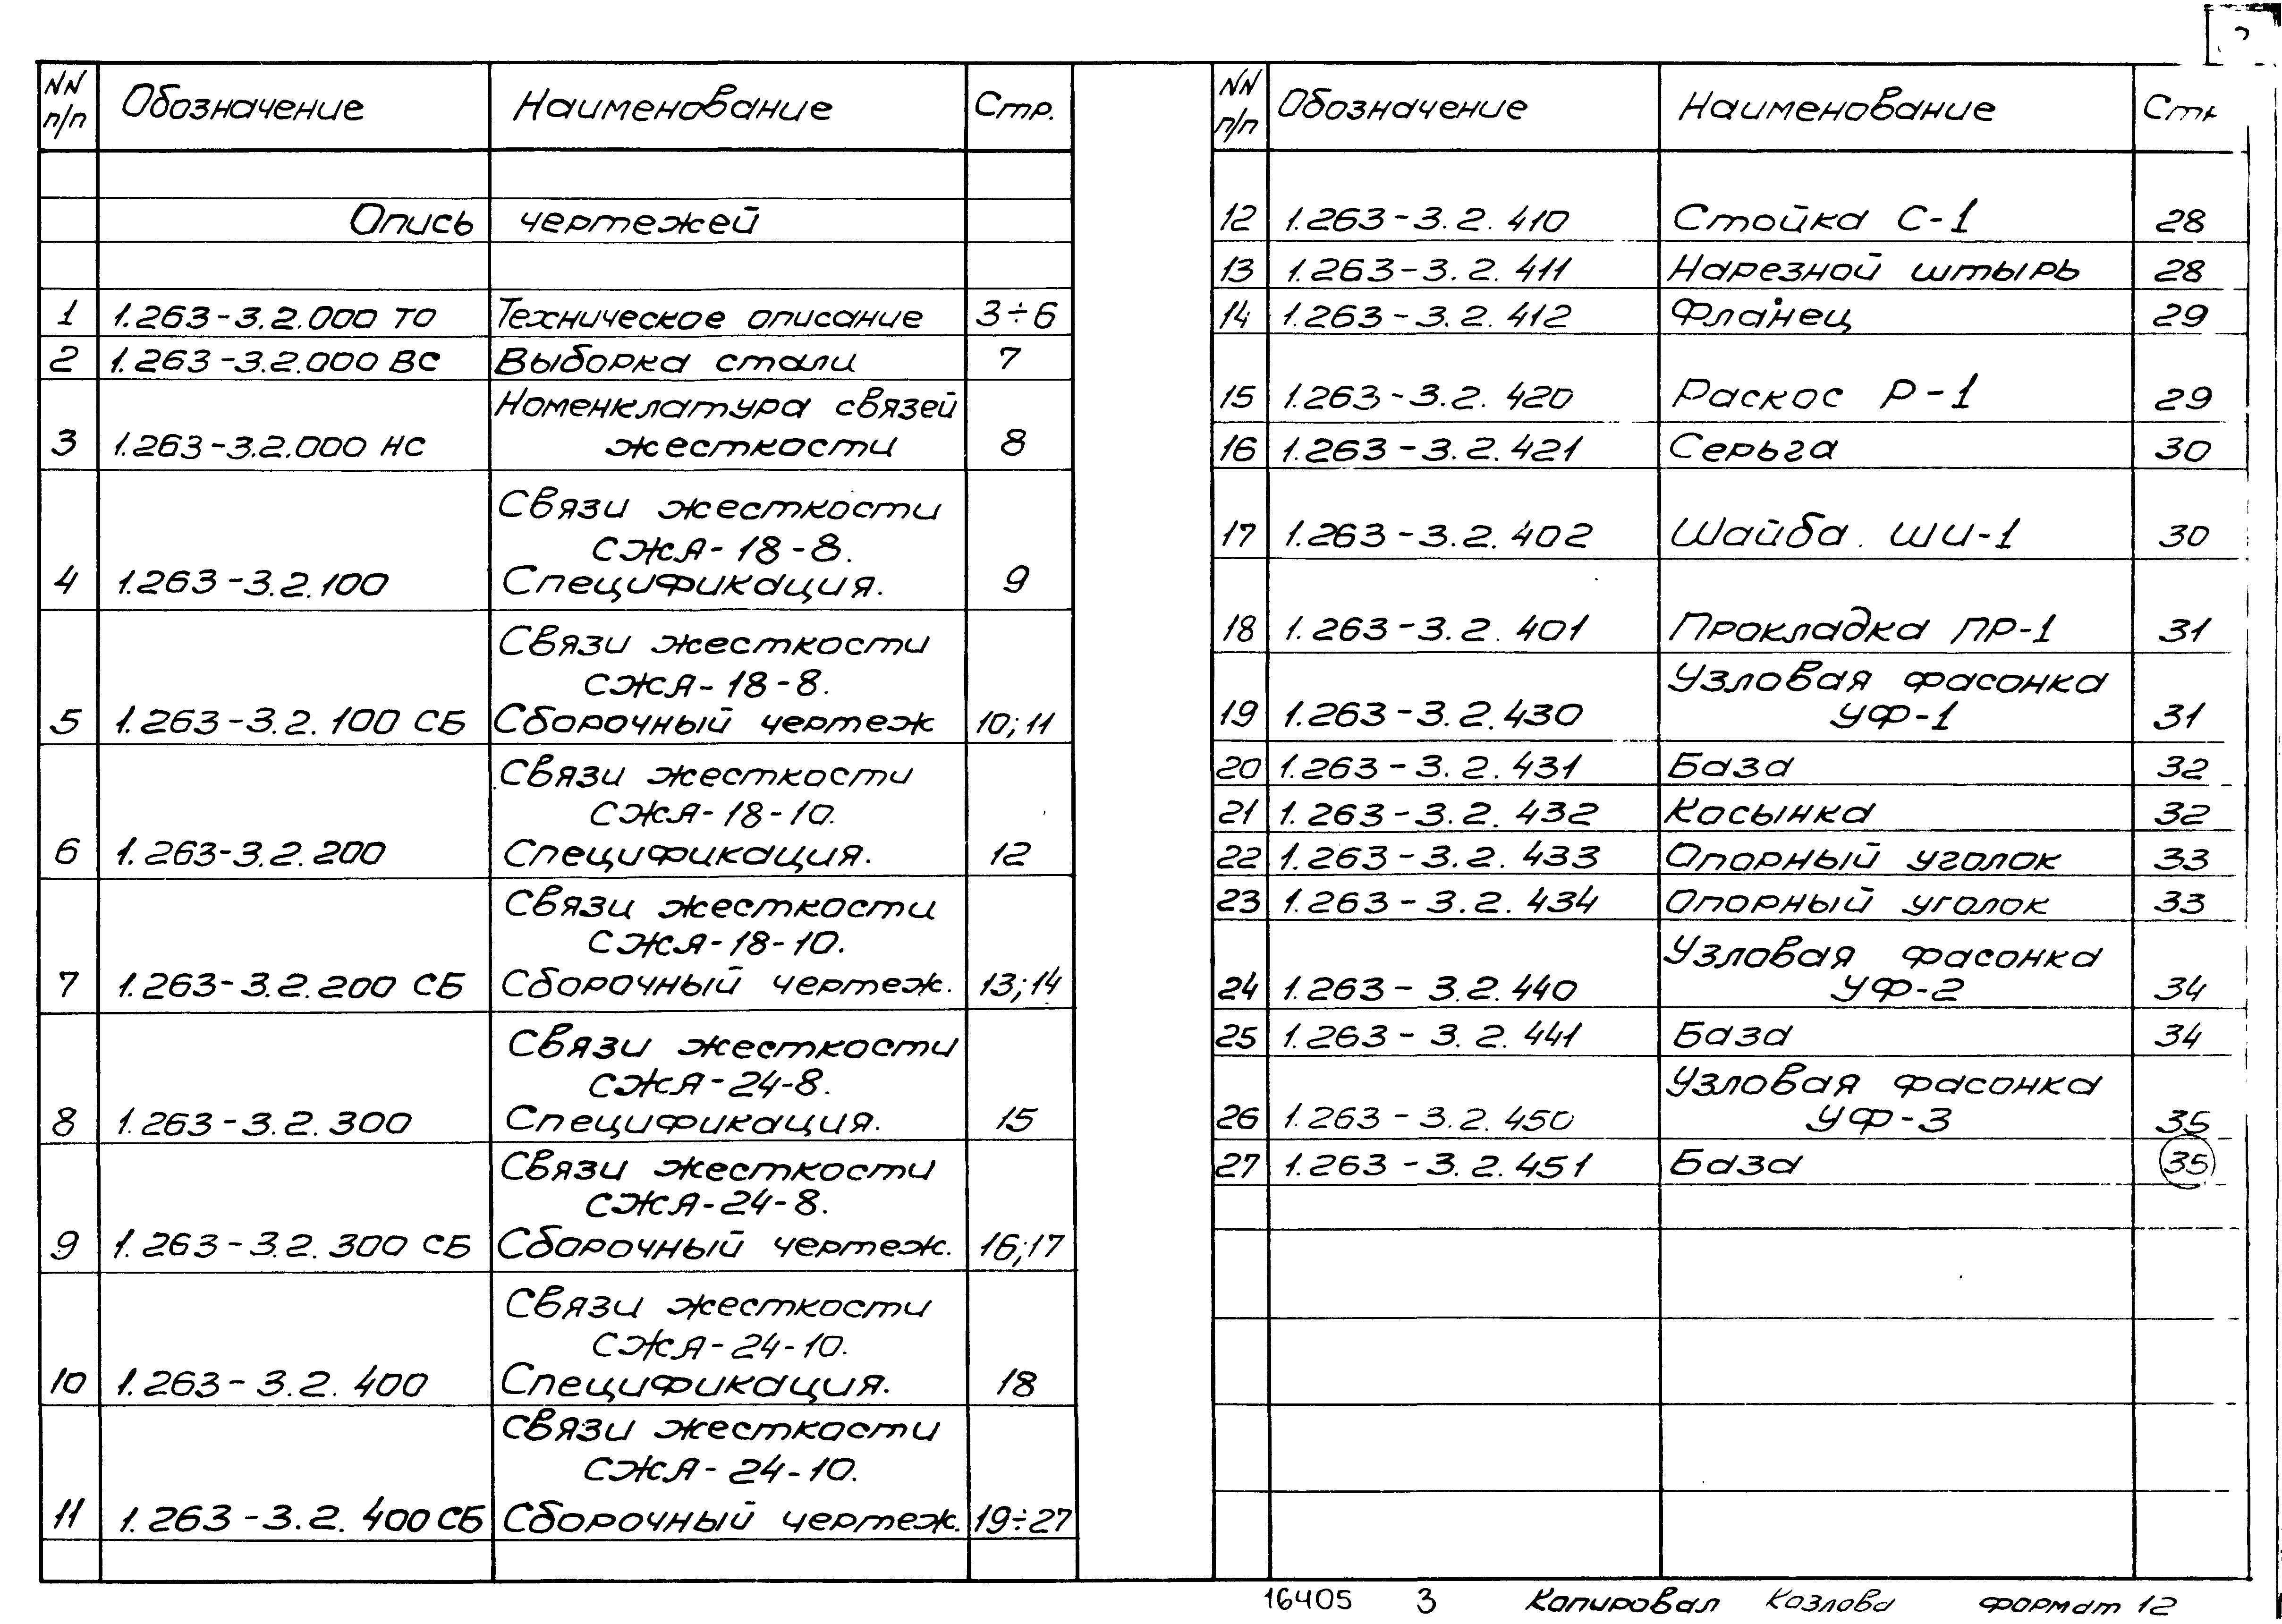 NN п/п Обозначение Наименование Стр.
Опись чертежей
1 1.263-3.2.000 ТО Техническое описание 3÷6
2 1.263-3.2.000 ВС Выборка стали 7
Номенклатура связей
3 1.263-3.2.000 НС жесткости 8
Связи жесткости
СЖЯ-18-8.
4 1.263-3.2.100 Спецификация. 9
Связи жесткости
СЖЯ-18-8.
5 1.263-3.2.100 СБ Сборочный чертеж 10;11
Связи жесткости
СЖЯ-18-10.
6 1.263-3.2.200 Спецификация. 12
Связи жесткости
СЖЯ-18-10.
7 1.263-3.2.200 СБ Сборочный чертеж. 13;14
Связи жесткости
СЖЯ-24-8.
8 1.263-3.2.300 Спецификация. 15
Связи жесткости
СЖЯ-24-8.
9 1.263-3.2.300 СБ Сборочный чертеж. 16;17
Связи жесткости
СЖЯ-24-10.
10 1.263-3.2.400 Спецификация. 18
Связи жесткости
СЖЯ-24-10.
11 1.263-3.2.400 СБ Сборочный чертеж. 19÷27
NN п/п Обозначение Наименование
12 1.263-3.2.410 Стойка С-1 28
13 1.263-3.2.411 Нарезной штырь 28
14 1.263-3.2.412 Фланец 29
15 1.263-3.2.420 Раскос Р-1 29
16 1.263-3.2.421 Серьга 30
17 1.263-3.2.402 Шайба ШИ-1 30
18 1.263-3.2.401 Прокладка ПР-1 31
Узловая фасонка
19 1.263-3.2.430 УФ-1 31
20 1.263-3.2.431 База 32
21 1.263-3.2.432 Косынка 32
22 1.263-3.2.433 Опорный уголок 33
23 1.263-3.2.434 Опорный уголок 33
Узловая фасонка
24 1.263-3.2.440 УФ-2 34
25 1.263-3.2.441 База 34
Узловая фасонка
26 1.263-3.2.450 УФ-3 35
27 1.263-3.2.451 База 35
16405 3 Копировал Козлова формат 12